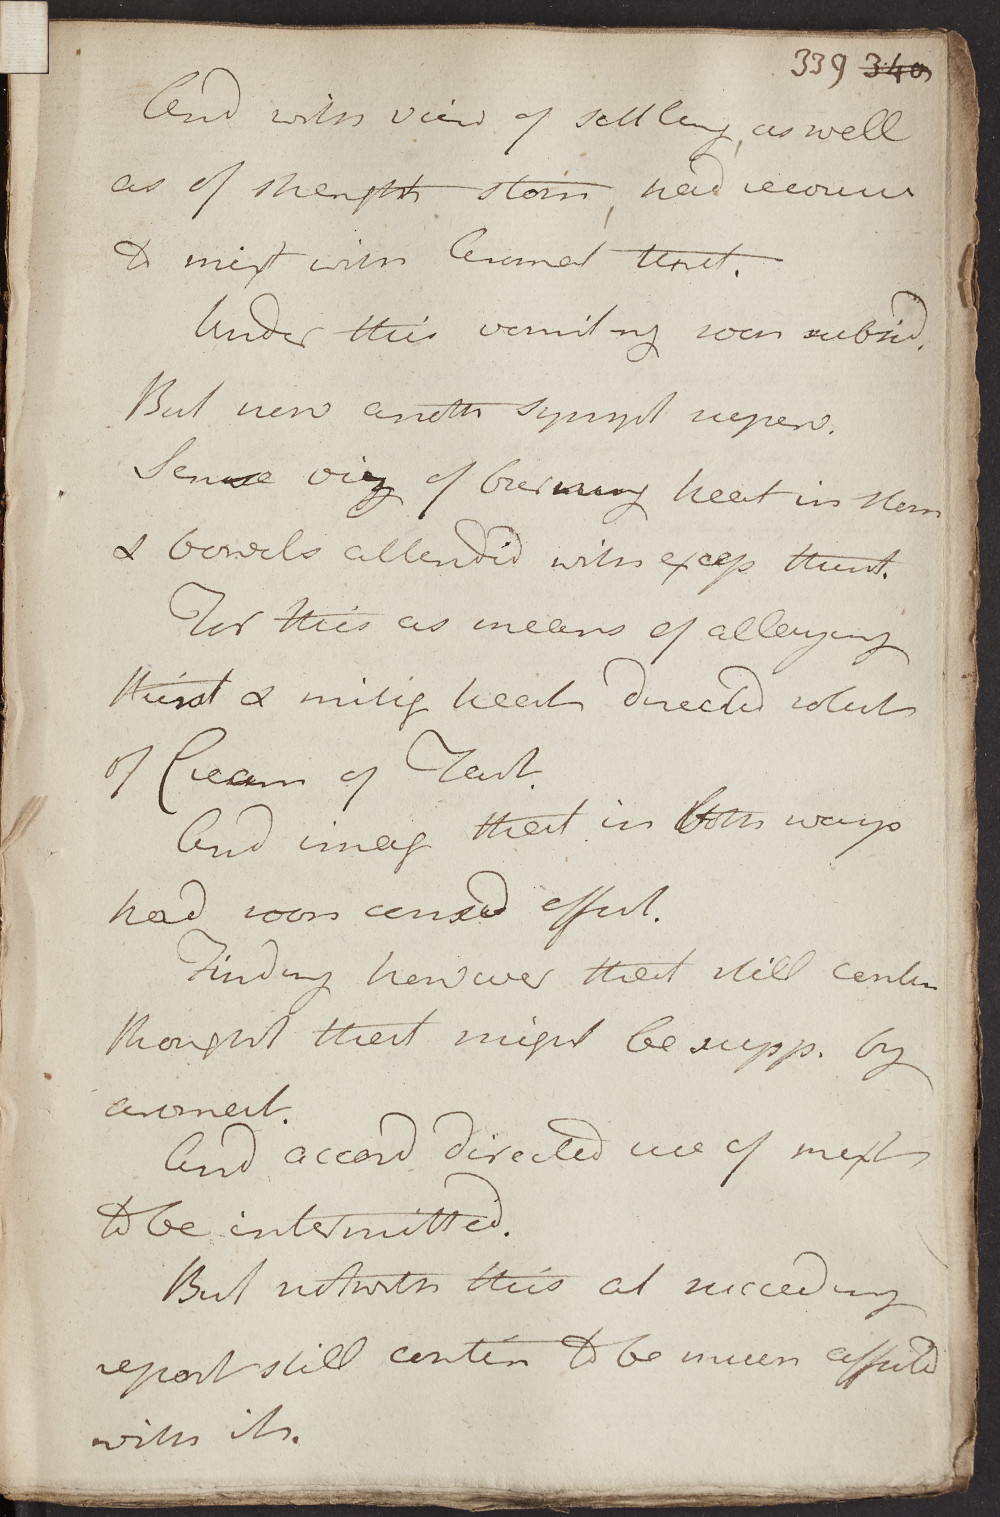 339 340
And with view of settling, as well
as of strength stom, had recours
to mixt with Aromat tinct.
Under this vomiting soon subsid.
But now anoth sympt appear.
Sense viz of burning heat in stom
& bowels attendid with excess thirst.
For this as means of allaying
thirst & mitig heat directed solut
of Cream of Tart.
And imag that in both ways
had soon consid effect.
Finding however that still contin
thought that might be supp. by
aromat.
And accord directed use of mixt
to be intermitted.
But notwith this at succeeding
report still contin to be much affected
with it.